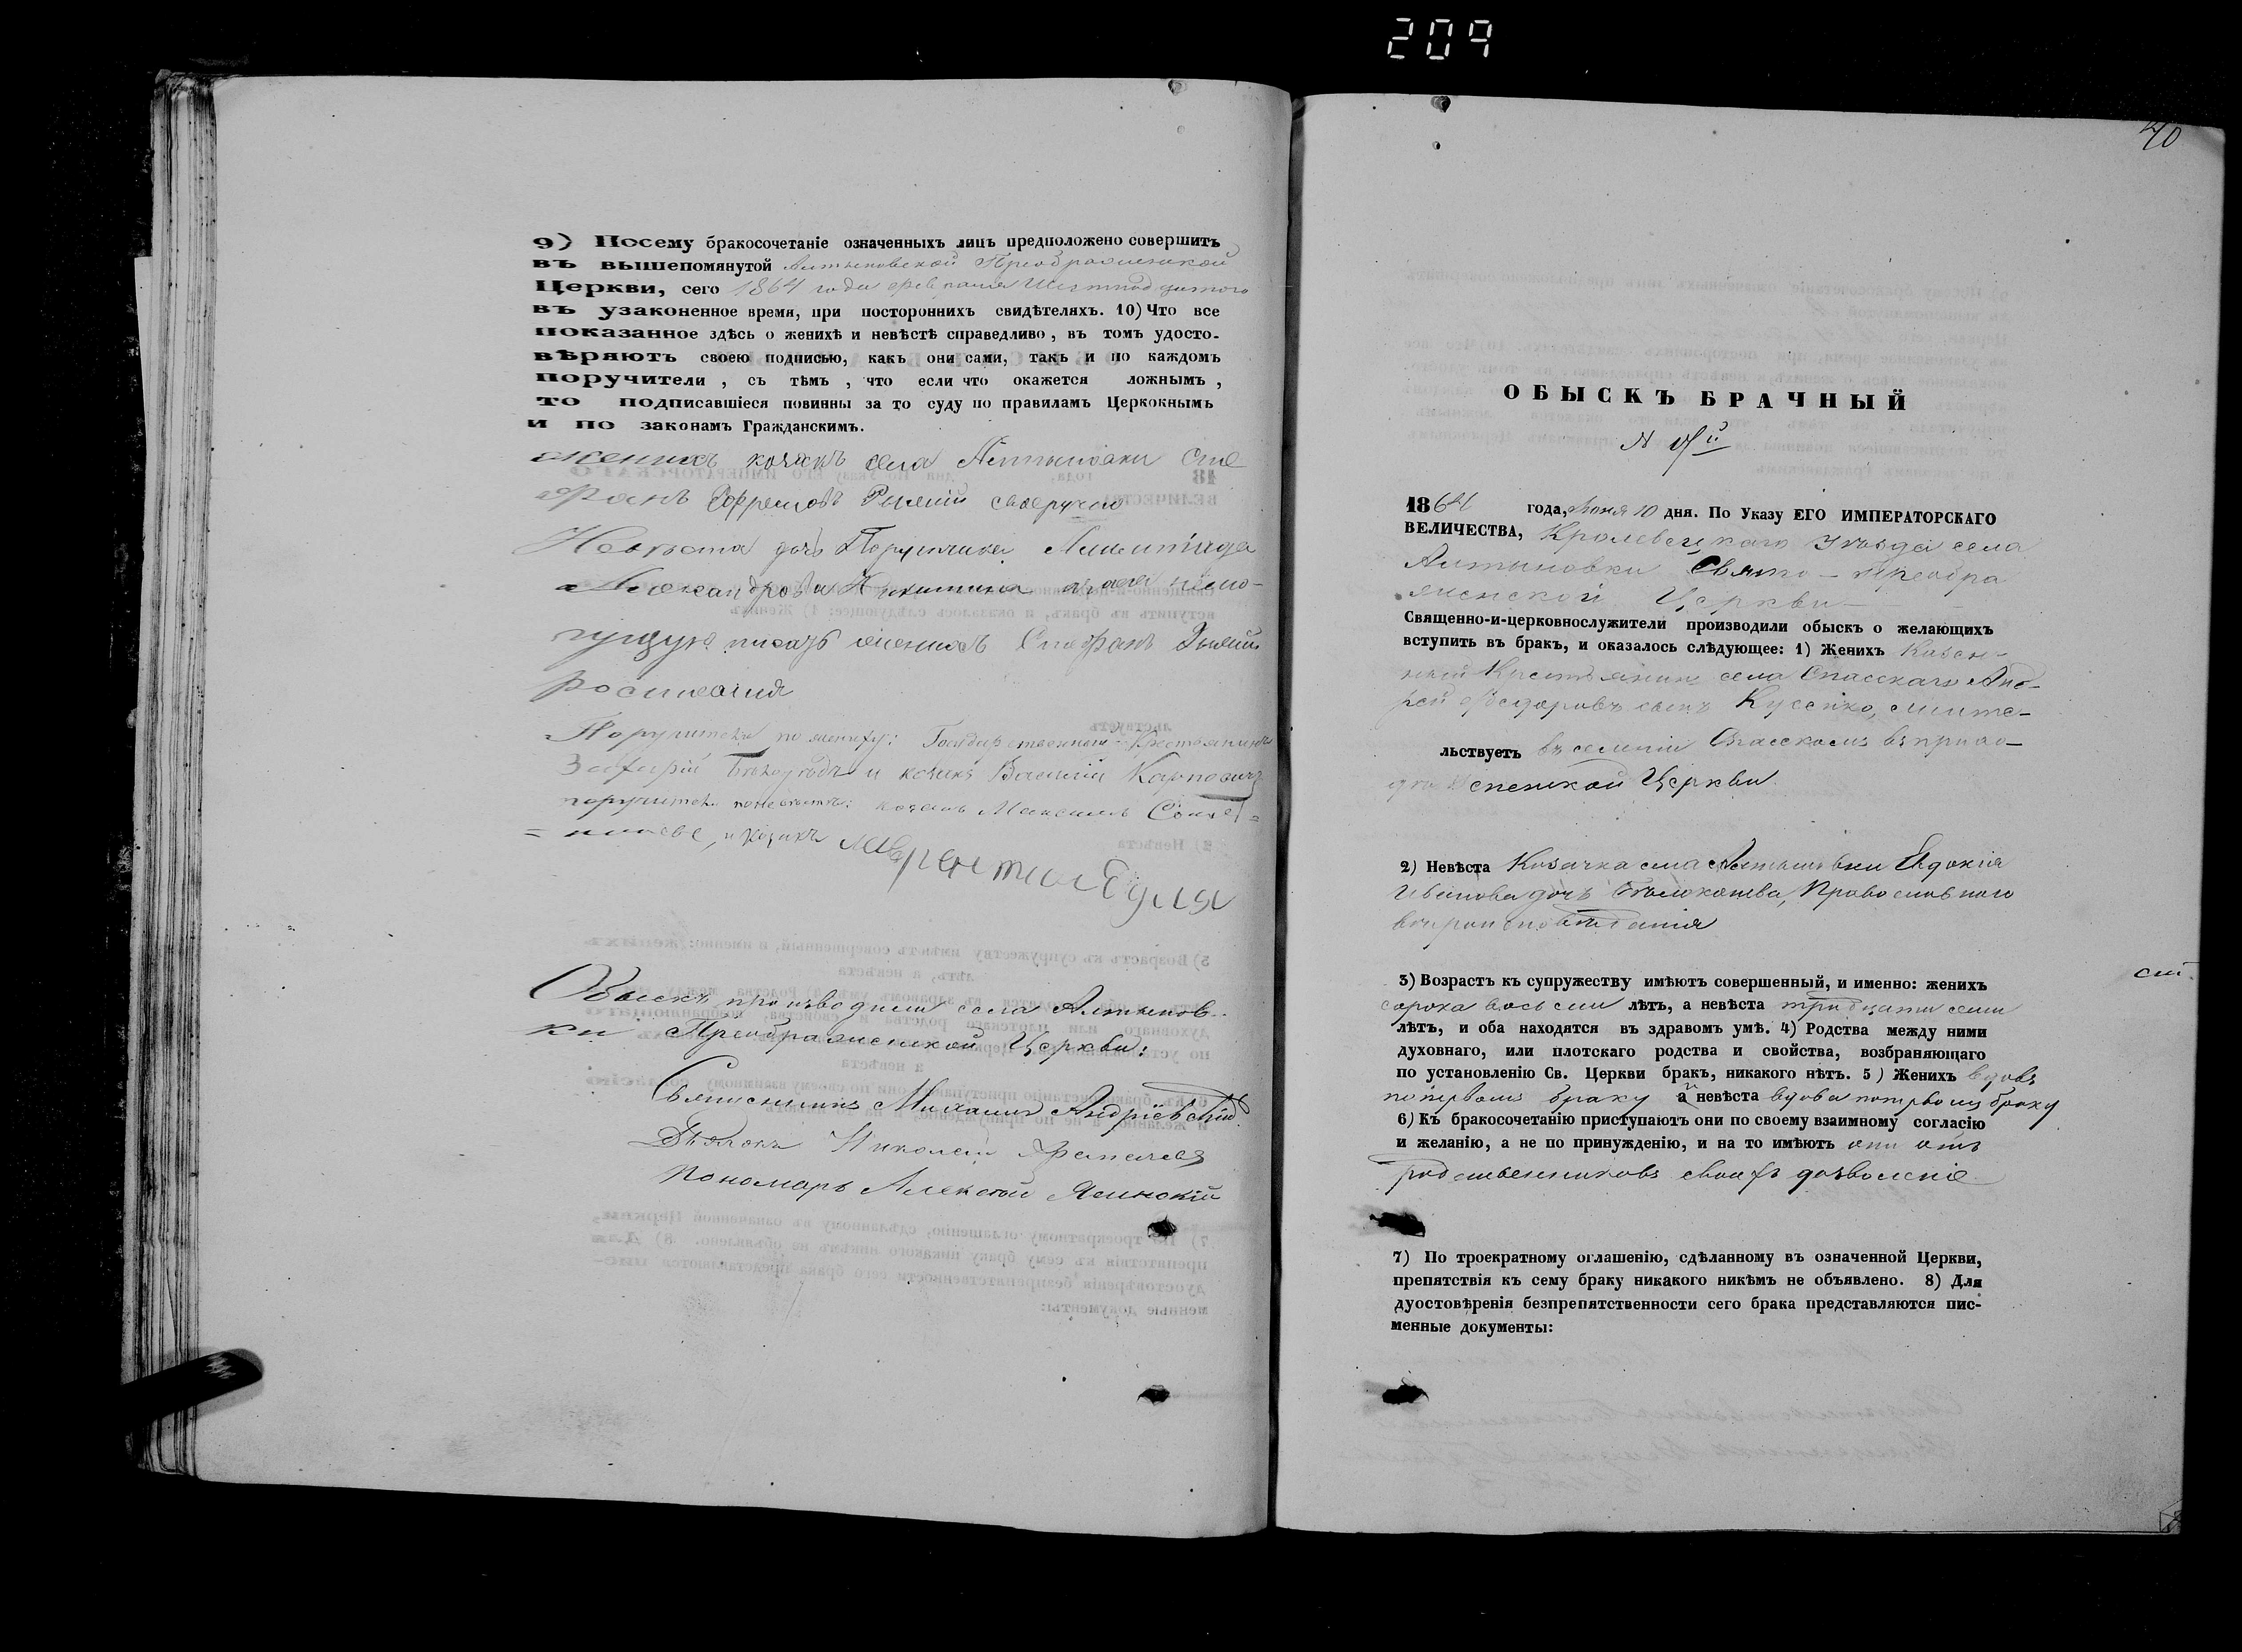 209
9) Посему бракосочетаніе означенныхъ лицъ предположено совершить
въ вышепомянутой Алтыновской Преображенской
Церкви, сего 1864 года февраля Шестнадцатого
въ узаконенное время, при постороннихъ свидѣтеляхъ. 10) Что все
показанное здѣсь о женихѣ и невѣстѣ справедливо, въ томъ удосто-
вѣряютъ своею подписью, какъ они сами, такъ и по каждомъ
поручители, съ тѣмъ, что если что окажется ложнымъ,
то подписавшіеся повинны за то суду по правиламъ Церкокнымъ
и по законамъ Гражданскимъ.
женихъ козакъ села Алтыновки Сте
фанъ Ефремовъ
Невѣста дочь Порутчика
Александрова Никитина а за нея немо-
гущую писать женихъ Стефанъ
росписался
Поручители по жениху: Государственный Крестьянинъ
Захарій и козакъ Василій Карпович
поручители по невѣстѣ: козакъ Максимъ
и козакъ Лаврентий
Обыскъ производили села Алтынов-
ки Преображенской Церкви:
Священникъ Михаилъ Андріевскій
Дьячокъ Николай
Пономарь Алексѣй Ясинскій
40
ОБЫСКЪ БРАЧНЫЙ
N
1864 года, Іюня 10 дня. По Указу ЕГО ИМПЕРАТОРСКАГО
ВЕЛИЧЕСТВА, Кролевецкаго уѣзда села
Алтыновки Свято-Преобра
женской Церкви
Священно-и-церковнослужители производили обыскъ о желающихъ
вступить въ бракъ, и оказалось слѣдующее: 1) Женихъ Казен-
ный Крестьянинъ села Спасскаго Анд-
рей Федоровъ сынъ жите-
льствуетъ въ селеніи Спасскомъ въ прихо-
Церкви.
2) Невѣста Козачка села Алтыновки Евдокія
Иванова дочь Православнаго
вѣроисповѣданія
3) Возрастъ къ супружеству имѣютъ совершенный, и именно: женихъ
сорока восьми лѣтъ, а невѣста тридцати семи
лѣтъ, и оба находятся въ здравомъ умѣ. 4) Родства между ними
духовнаго, или плотскаго родства и свойства, возбраняющаго
по установленію Св. Церкви бракъ, никакого нѣтъ. 5) Женихъ вдовъ
по первомъ браку а невѣста вдова по первомъ браку
6) Къ бракосочетанію приступаютъ они по своему взаимному согласію
и желанію, а не по принужденію, и на то имѣютъ они отъ
родственниковъ своихъ дозволеніе
7) По троекратному оглашенію, сдѣланному въ означенной Церкви,
препятствія къ сему браку никакого никѣмъ не объявлено. 8) Для
дуостовѣренія безпрепятственности сего брака представляются пис-
менные документы: